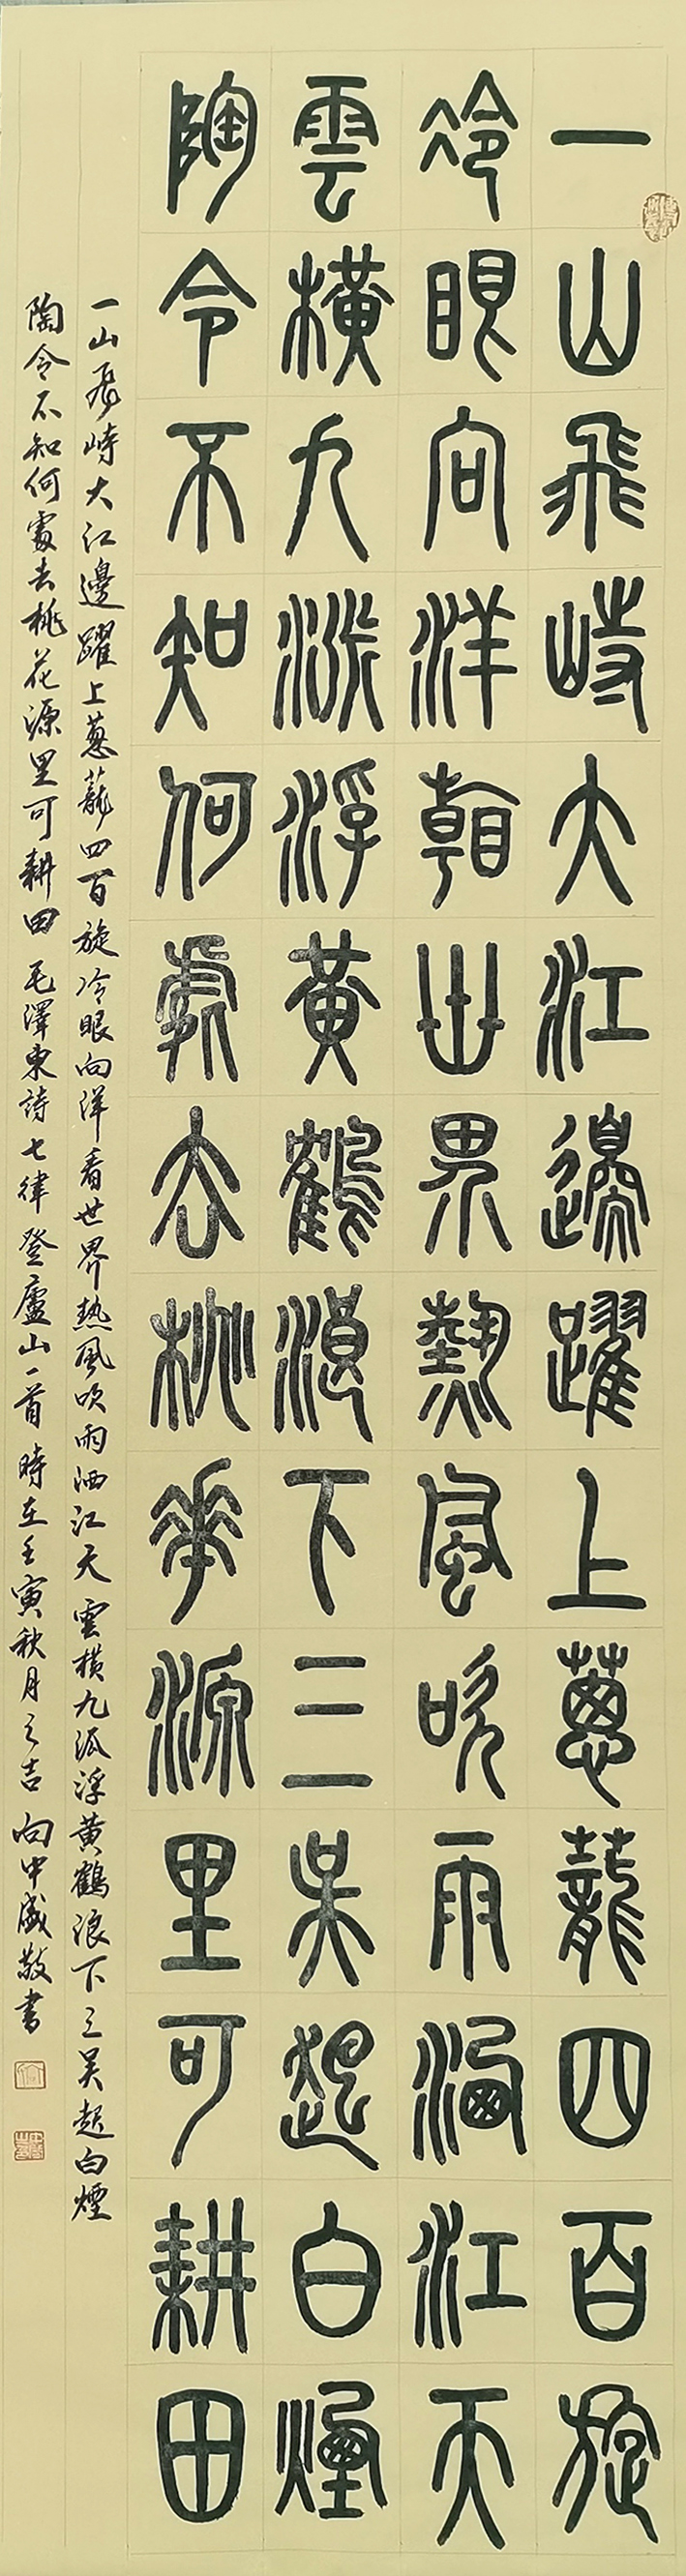 一山飛峙大江邊躍上蔥蘢四百旋
冷眼向洋看世界熱風吹雨洒江天
雲橫九派浮黃鶴浪下三吳起白煙
陶令不知何處去桃花源里可耕田
一山飛峙大江邊躍上蔥蘢四百旋冷眼向洋看世界熱風吹雨洒江天雲橫九派浮黃鶴浪下三吳起白煙
陶令不知何處去桃花源里可耕田 毛澤東詩七律登廬山一首時在壬寅秋月之吉 向中盛敬書